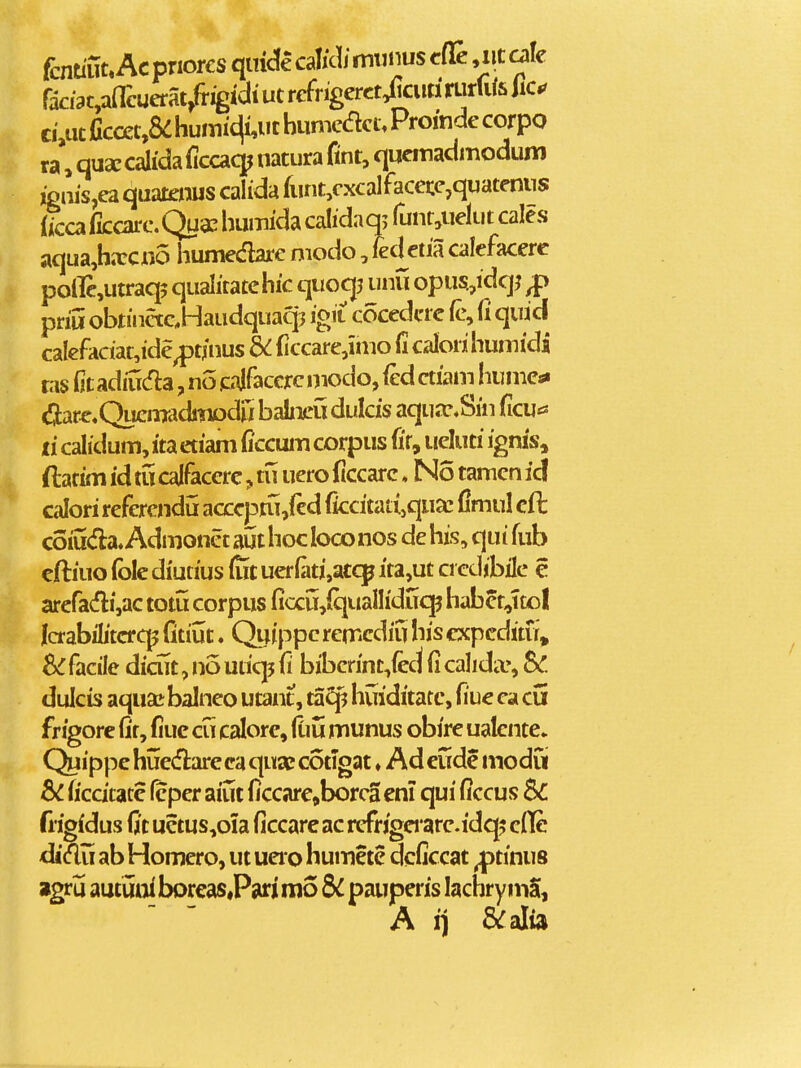 sentiūt. Ac priores quidē calidi munus esse, ut cale
faciat, asseuerāt, frigidi ut refrigeret, sicuti rursus sic⸗
ci, ut siccet, & humidi, ut humectet. Proinde corpo
ra, quæ calida siccaq; natura sint, quemadmodum
ignis, ea quatenus calida sunt, excalfacere, quatenus
sicca siccare. Quæ humida calidaq; sunt, uelut calēs
aqua, hæc nō humectare modo, sed etiā calefacere
posse, utraq; qualitate hic quoq; unū opus, idq; ꝓ
priū obtinēte. Haudquaq̃; igit̃ cōcedere se, si quid
calefaciat, idē ꝓtinus & siccare, īmo si calori humidi
tas sit adiūcta, nō calfacere modo, sed etiam hume⸗
ctare. Quemadmodū balneū dulcis aquæ. Sin sicu⸗
ti calidum, ita etiam siccum corpus sit, ueluti ignis,
statim id tū calfacere, tū uero siccare. Nō tamen id
calori referendū acceptū, sed siccitati, quæ simul est
cōiūcta. Admonēt aūt hoc loco nos de his, qui sub
estiuo sole diutius sūt uersati, atq; ita, ut credibile ē
arefacti, ac totū corpus siccū, squallidūq; habēt, ītol
lerabiliterq; sitiūt. Quippe remediū his expeditū,
& facile dicūt, nō utiq; si biberint, sed si calidæ, &
dulcis aquæ balneo utant̃, tāq̃; hūiditate, siue ea cū
frigore sit, siue cū calore, suū munus obire ualente.
Quippe hūectare ea quæ cōtīgat. Ad eūdē modū
& siccitatē sēper aiūt siccare, boreā enī qui siccus &
frigidus sit uētus, oīa siccare ac refrigerare. idq; esse
dictū ab Homero, ut uero humētē desiccat ꝓtinus
agrū autūni boreas. Pari mō & pauperis lachrymā,
A ij & alia